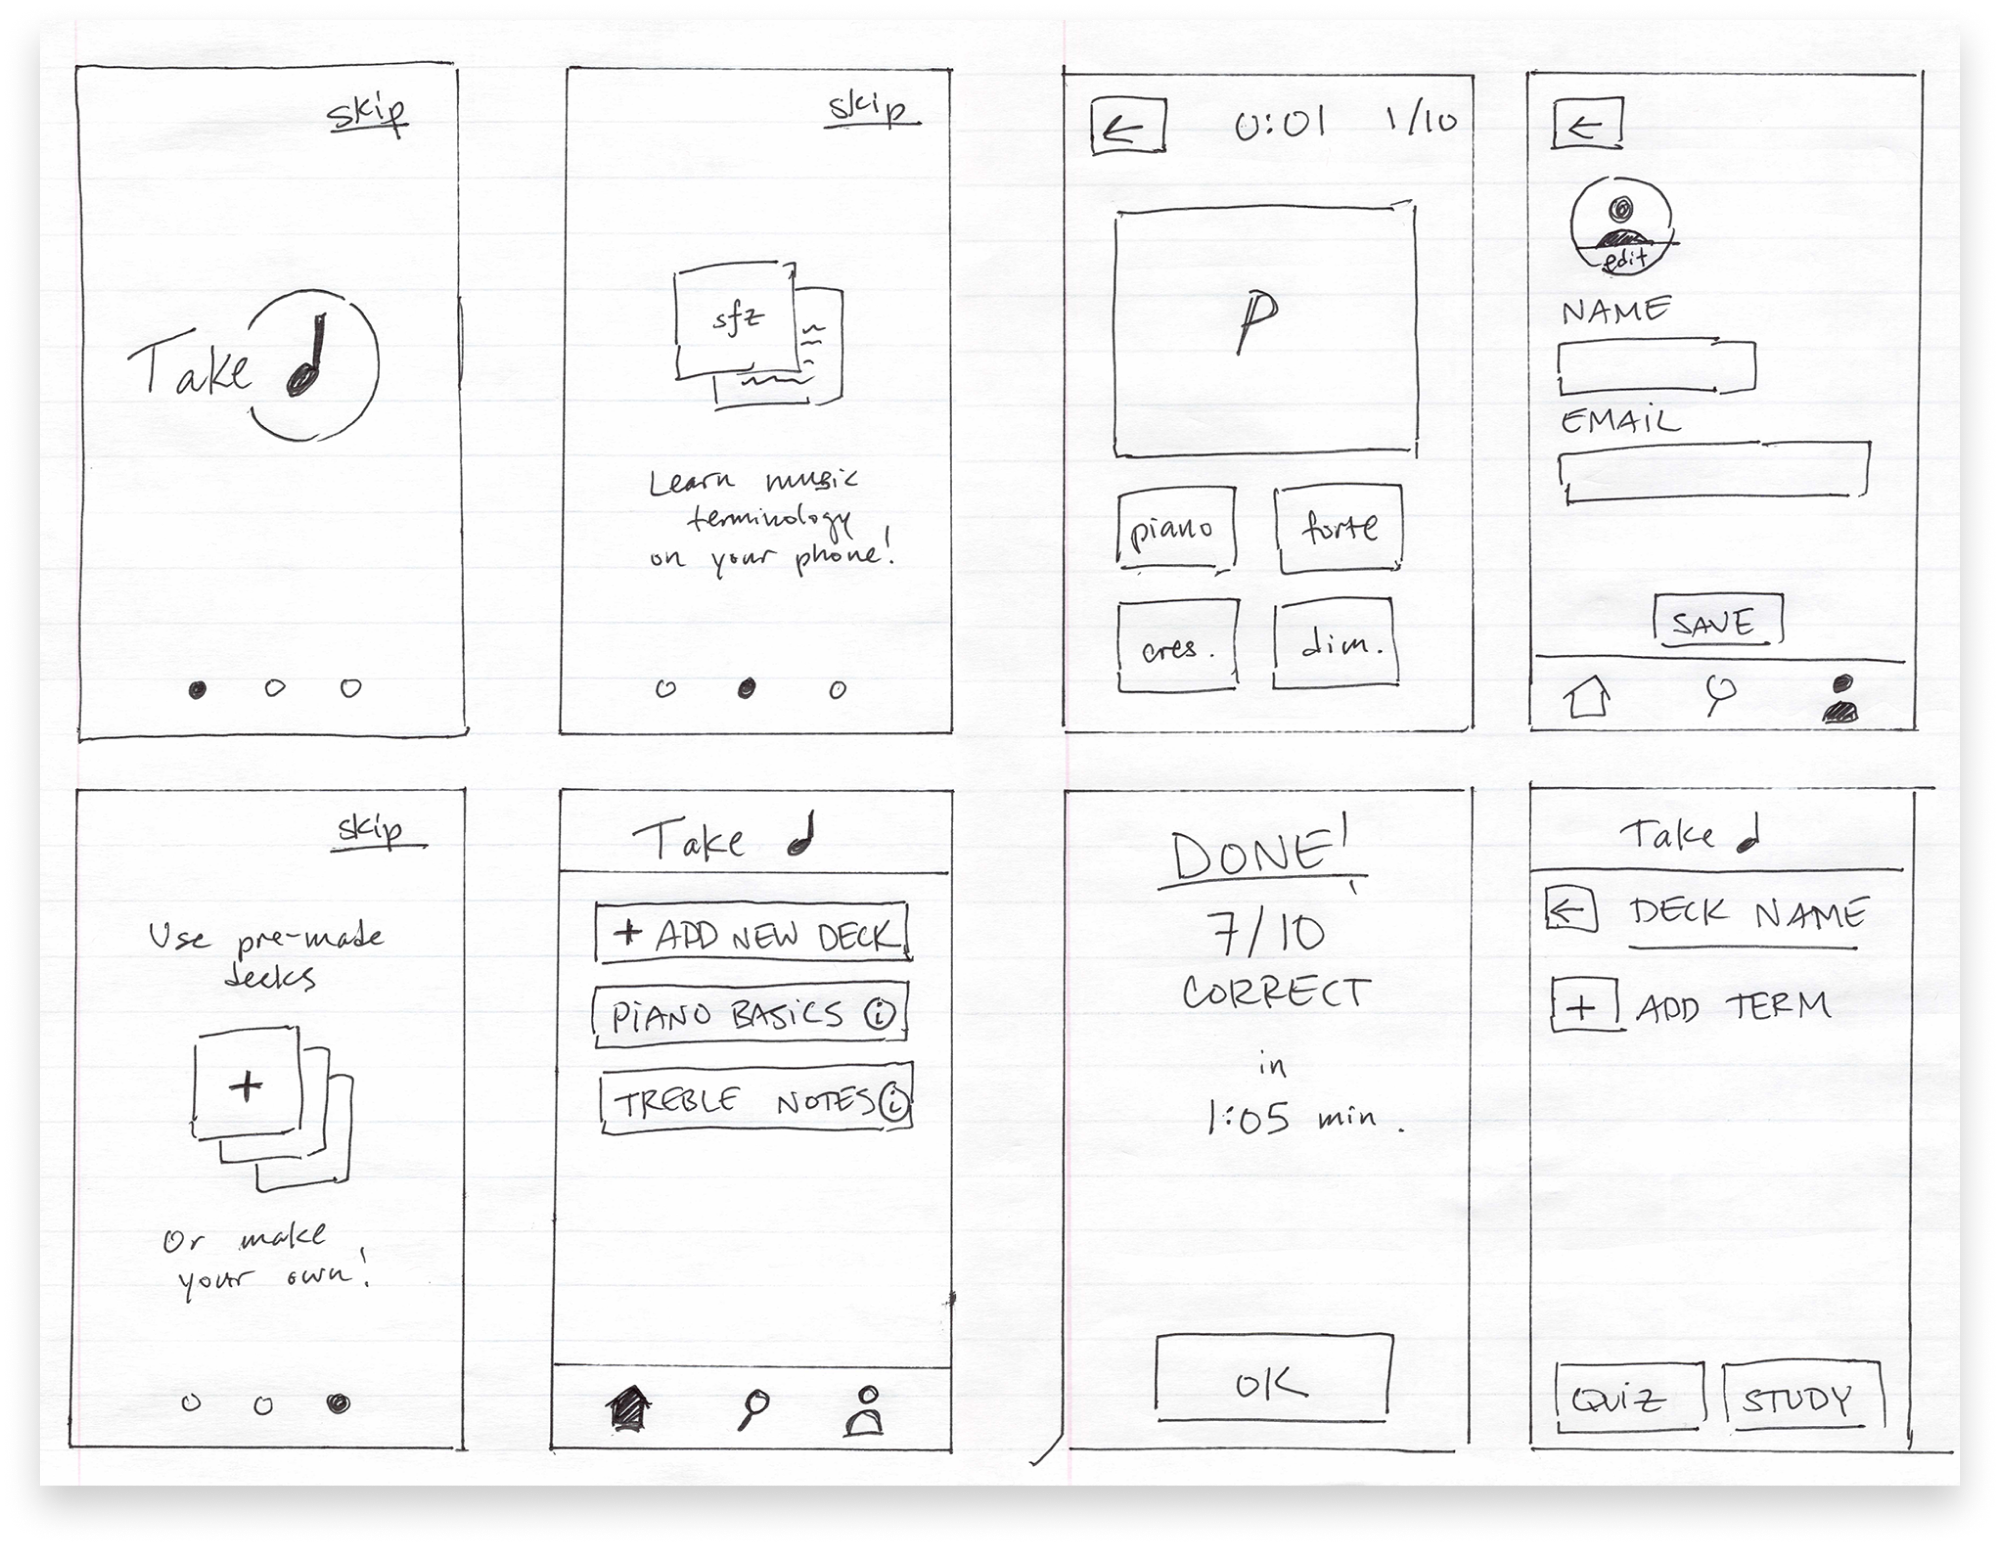 skip
Take
skip
sfz
Learn music
terminology
on your phone!
0:01 1/10
p
piano forte
cres. dim.
edit
NAME
EMAIL
SAVE
skip
Use pre-made
decks
+
Or make
your own!
Take
+ ADD NEW DECK
PIANO BASICS i
TREBLE NOTES i
DONE!
7/10
CORRECT
in
1:05 min.
OK
Take
DECK NAME
+ ADD TERM
QUIZ STUDY